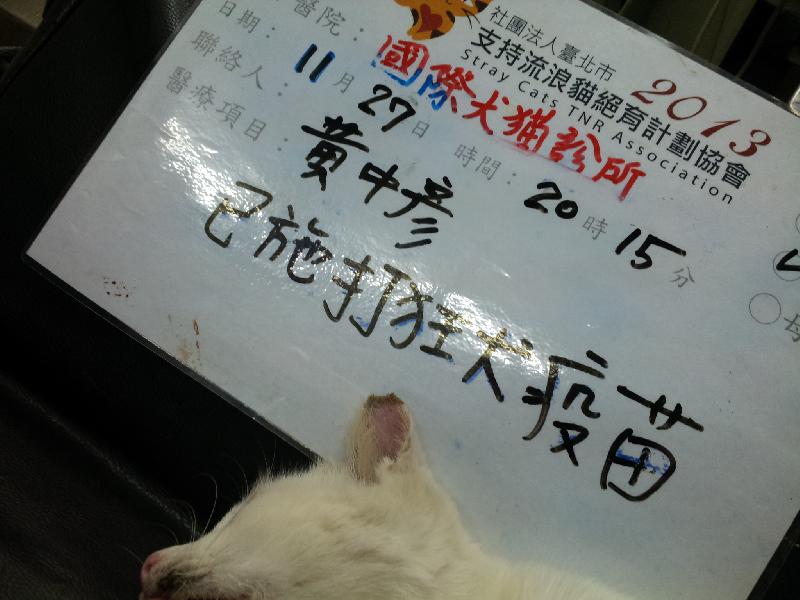 社團法人臺北市
支持流浪貓絕育計劃協會
Stray Cats TNR Association
2013
醫院：國際犬貓診所
日期：11月27日 時間：20時15分
聯絡人：黃中彥
醫療項目：
已施打狂犬疫苗
母